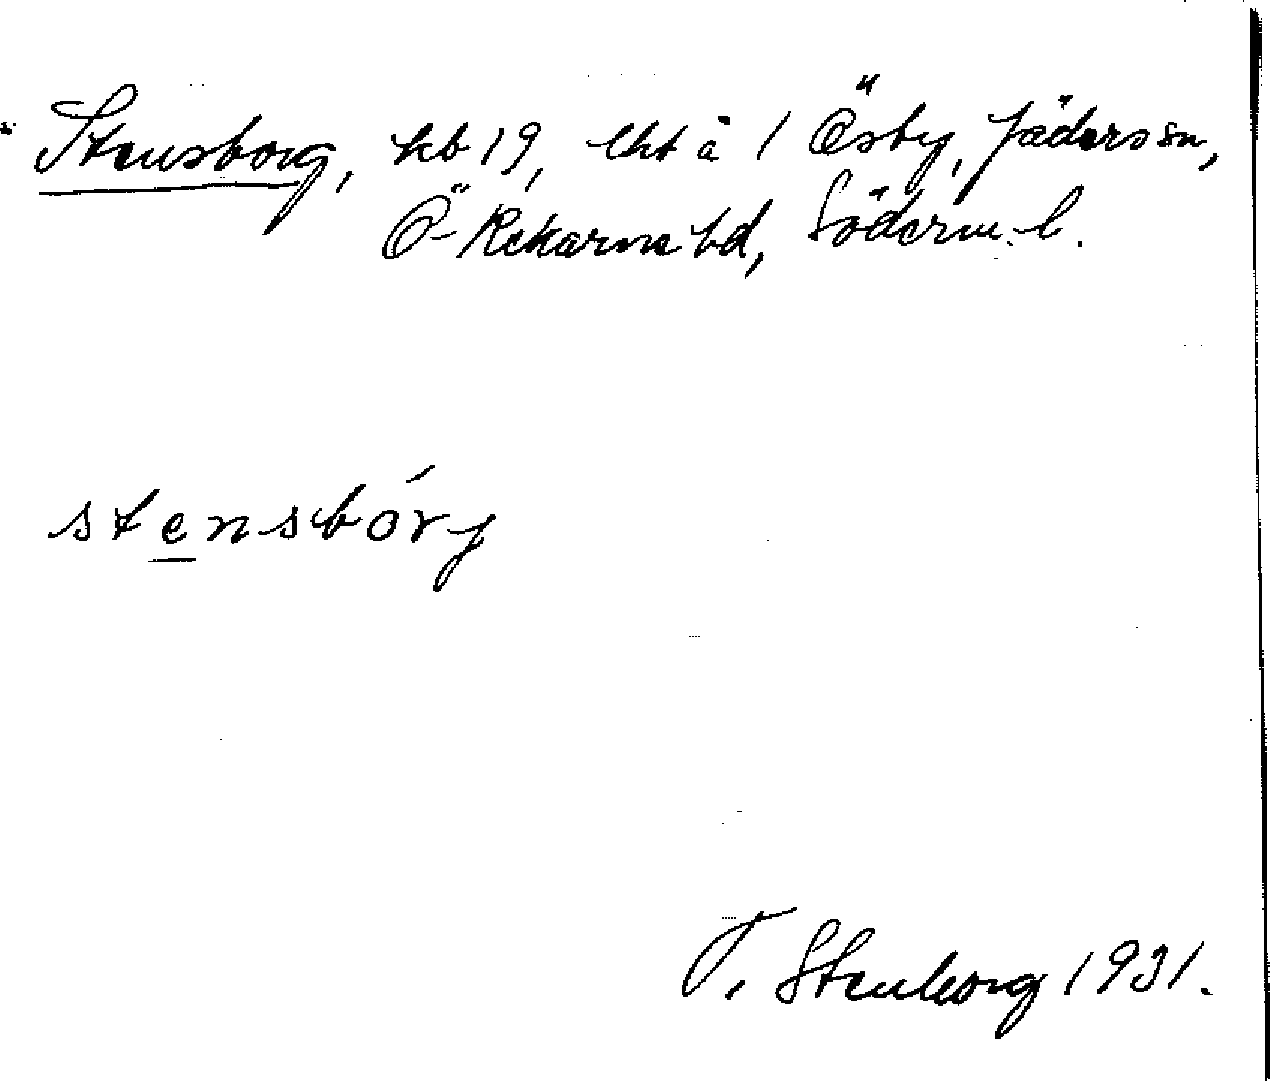 Stensborg, kb 19, lht å 1 Ösby, Jäders sn,
Ö-Rekarne hd, Söderm. l.
stensbórj
T. Stenborg 1931.